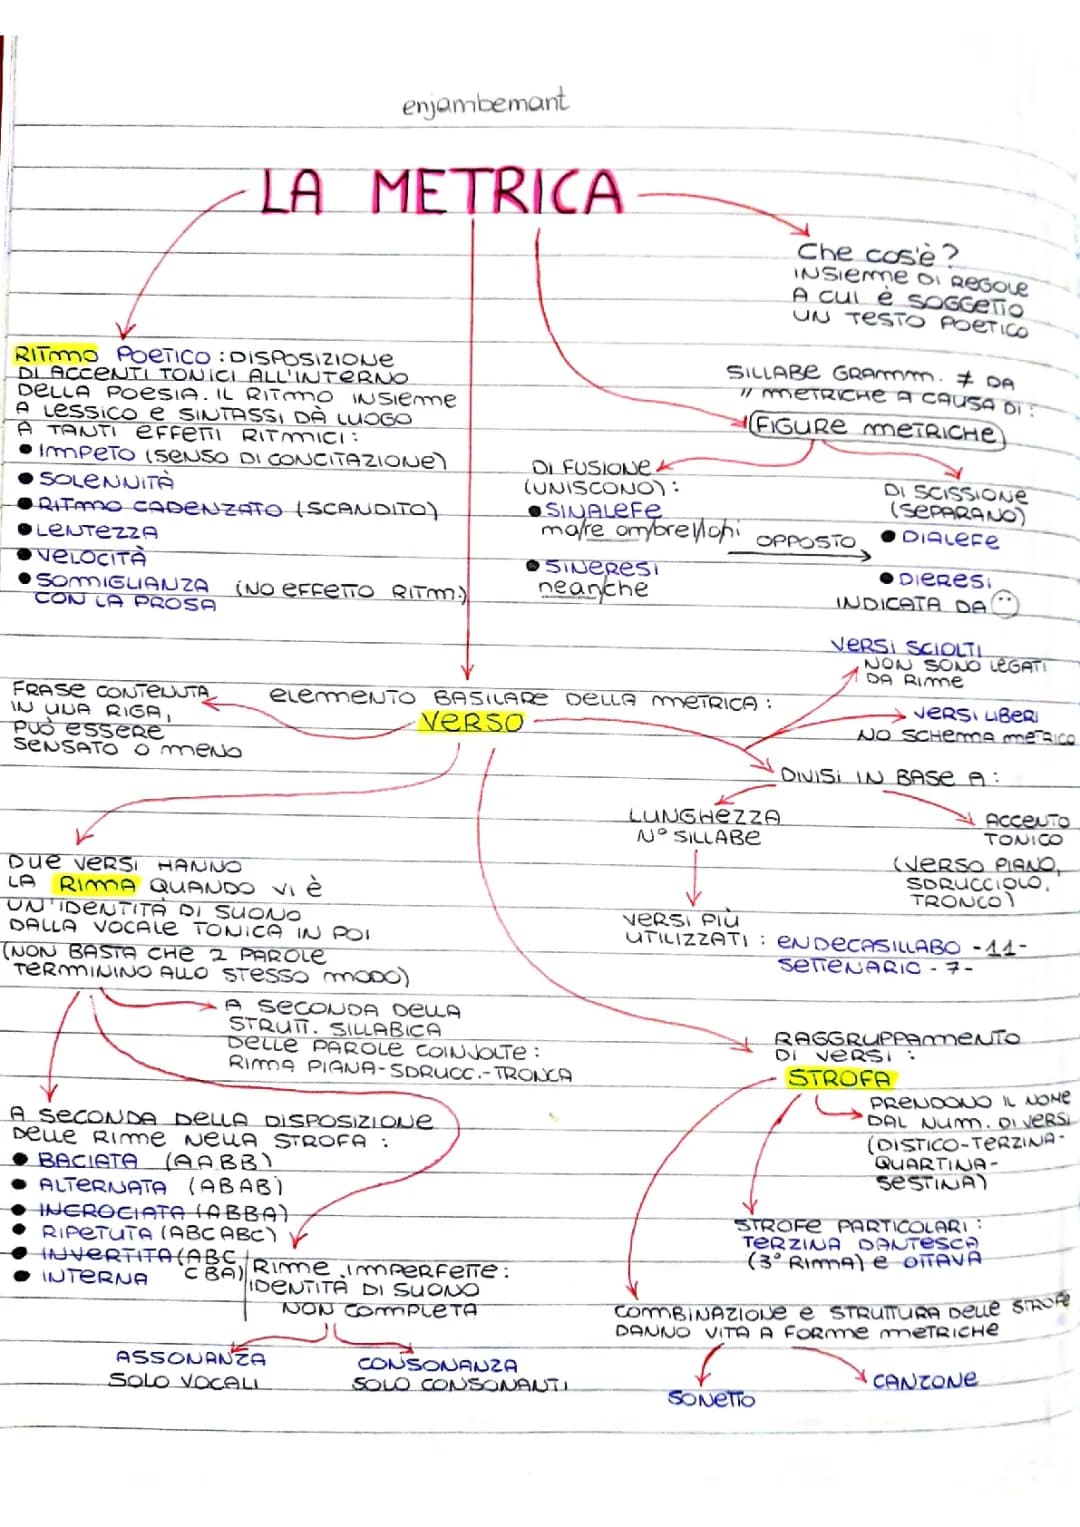 enjambemant
LA METRICA
Che cos'è?
INSIEME DI REGOLE
A CUI è SOGGETTO
UN TESTO POETICO
RITMO POETICO: DISPOSIZIONE
DI ACCENTI TONICI ALL'INTERNO
DELLA POESIA. IL RITMO INSIEME
A LESSICO e SINTASSI DÀ LUOGO
A TANTI EFFETTI RITMICI:
• IMPETO (SENSO DI CONCITAZIONE)
• SOLENNITÀ
• RITMO CADENZATO (SCANDITO)
• LENTEZZA
• VELOCITÀ
• SOMIGLIANZA (NO EFFETTO RITM.)
CON LA PROSA
SILLABE GRAMM. ≠ DA
// METRICHE A CAUSA DI:
FIGURE METRICHE
DI FUSIONE
(UNISCONO):
• SINALEFE
mare ombre/lohi
• SINERESI
neanche
OPPOSTO
DI SCISSIONE
(SEPARANO)
• DIALEFE
• DIERESI
INDICATA DA ¨
ELEMENTO BASILARE DELLA METRICA:
VERSO
FRASE CONTENUTA
IN UNA RIGA,
PUÒ ESSERE
SENSATO O MENO
VERSI SCIOLTI
NON SONO LEGATI
DA RIME
VERSI LIBERI
NO SCHEMA METRICO
DIVISI IN BASE A:
LUNGHEZZA
N° SILLABE
VERSI PIÙ
UTILIZZATI: ENDECASILLABO -11-
SETTENARIO -7-
ACCENTO
TONICO
(VERSO PIANO,
SDRUCCIOLO,
TRONCO)
DUE VERSI HANNO
LA RIMA QUANDO VI è
UN'IDENTITÀ DI SUONO
DALLA VOCALE TONICA IN POI
(NON BASTA CHE 2 PAROLE
TERMININO ALLO STESSO MODO)
A SECONDA DELLA
STRUTT. SILLABICA
DELLE PAROLE COINVOLTE:
RIMA PIANA-SDRUCC.-TRONCA
A SECONDA DELLA DISPOSIZIONE
DELLE RIME NELLA STROFA:
• BACIATA (AABB)
• ALTERNATA (ABAB)
• INCROCIATA (ABBA)
• RIPETUTA (ABC ABC)
• INVERTITA (ABC
CBA)
• INTERNA
RIME IMPERFETTE:
IDENTITÀ DI SUONO
NON COMPLETA
ASSONANZA
SOLO VOCALI
CONSONANZA
SOLO CONSONANTI
RAGGRUPPAMENTO
DI VERSI:
STROFA
PRENDONO IL NOME
DAL NUM. DI VERSI
(DISTICO-TERZINA-
QUARTINA-
SESTINA)
STROFE PARTICOLARI:
TERZINA DANTESCA
(3° RIMA) e OTTAVA
COMBINAZIONE e STRUTTURA DELLE STROFE
DANNO VITA A FORME METRICHE
SONETTO
CANZONE